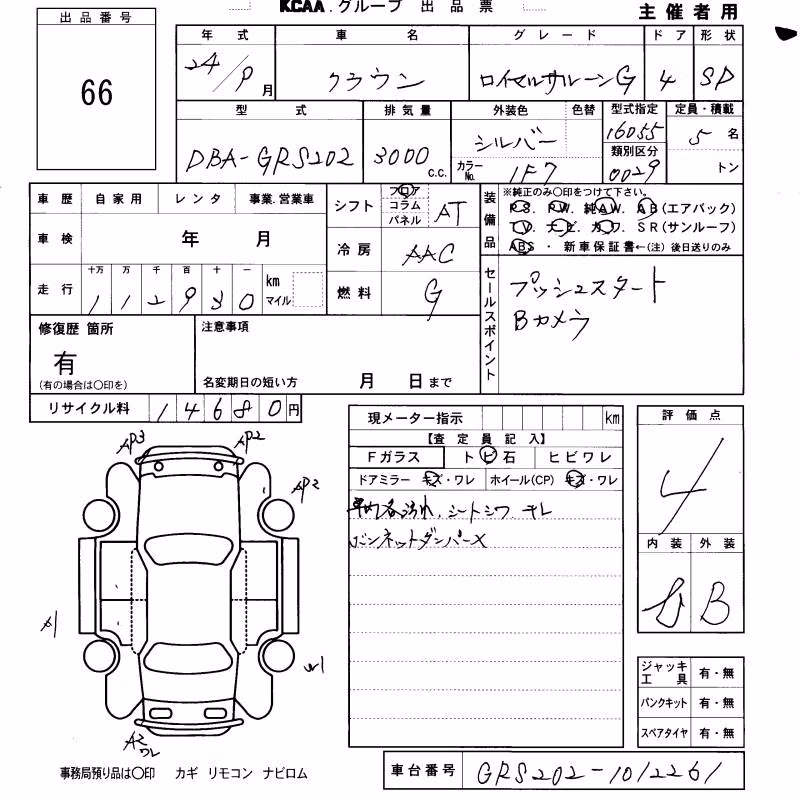 KCAA.グループ 出品票
主催者用
出品番号
66
年式 車名 グレード ドア 形状
24/9月 クラウン ロイヤルサルーンG 4 SD
型式 排気量 外装色 色替 型式指定 定員・積載
DBA-GRS202 3000 c.c. シルバー 16055 5 名
カラーNo. 1F7 類別区分 0029 トン
車歴 自家用 レンタ 事業.営業車
車検 年 月
走行 十万 万 千 百 十 一
112930 km マイル
シフト フロア コラム パネル AT
冷房 AAC
燃料 G
装備品
※純正のみ○印をつけて下さい。
P S. P W. 純A W. A B(エアバック)
T V. ナビ. カワ. S R(サンルーフ)
ABS ・ 新車保証書←(注) 後日送りのみ
セールスポイント
プッシュスタート
Bカメラ
修復歴 箇所
有
(有の場合は○印を)
注意事項
名変期日の短い方 月 日まで
リサイクル料 14680円
現メーター指示 km
【査定員記入】
Fガラス トビ石 ヒビワレ
ドアミラー キズ・ワレ ホイール(CP) キズ・ワレ
汚れ、シートシワ キレ
ボンネットダンパーX
評価点
4
内装 外装
B
ジャッキ工具 有・無
パンクキット 有・無
スペアタイヤ 有・無
AP3 AP2
AP2
A1
W1
A2
ワレ
事務局預り品は○印 カギ リモコン ナビロム
車台番号 GRS202-1012261